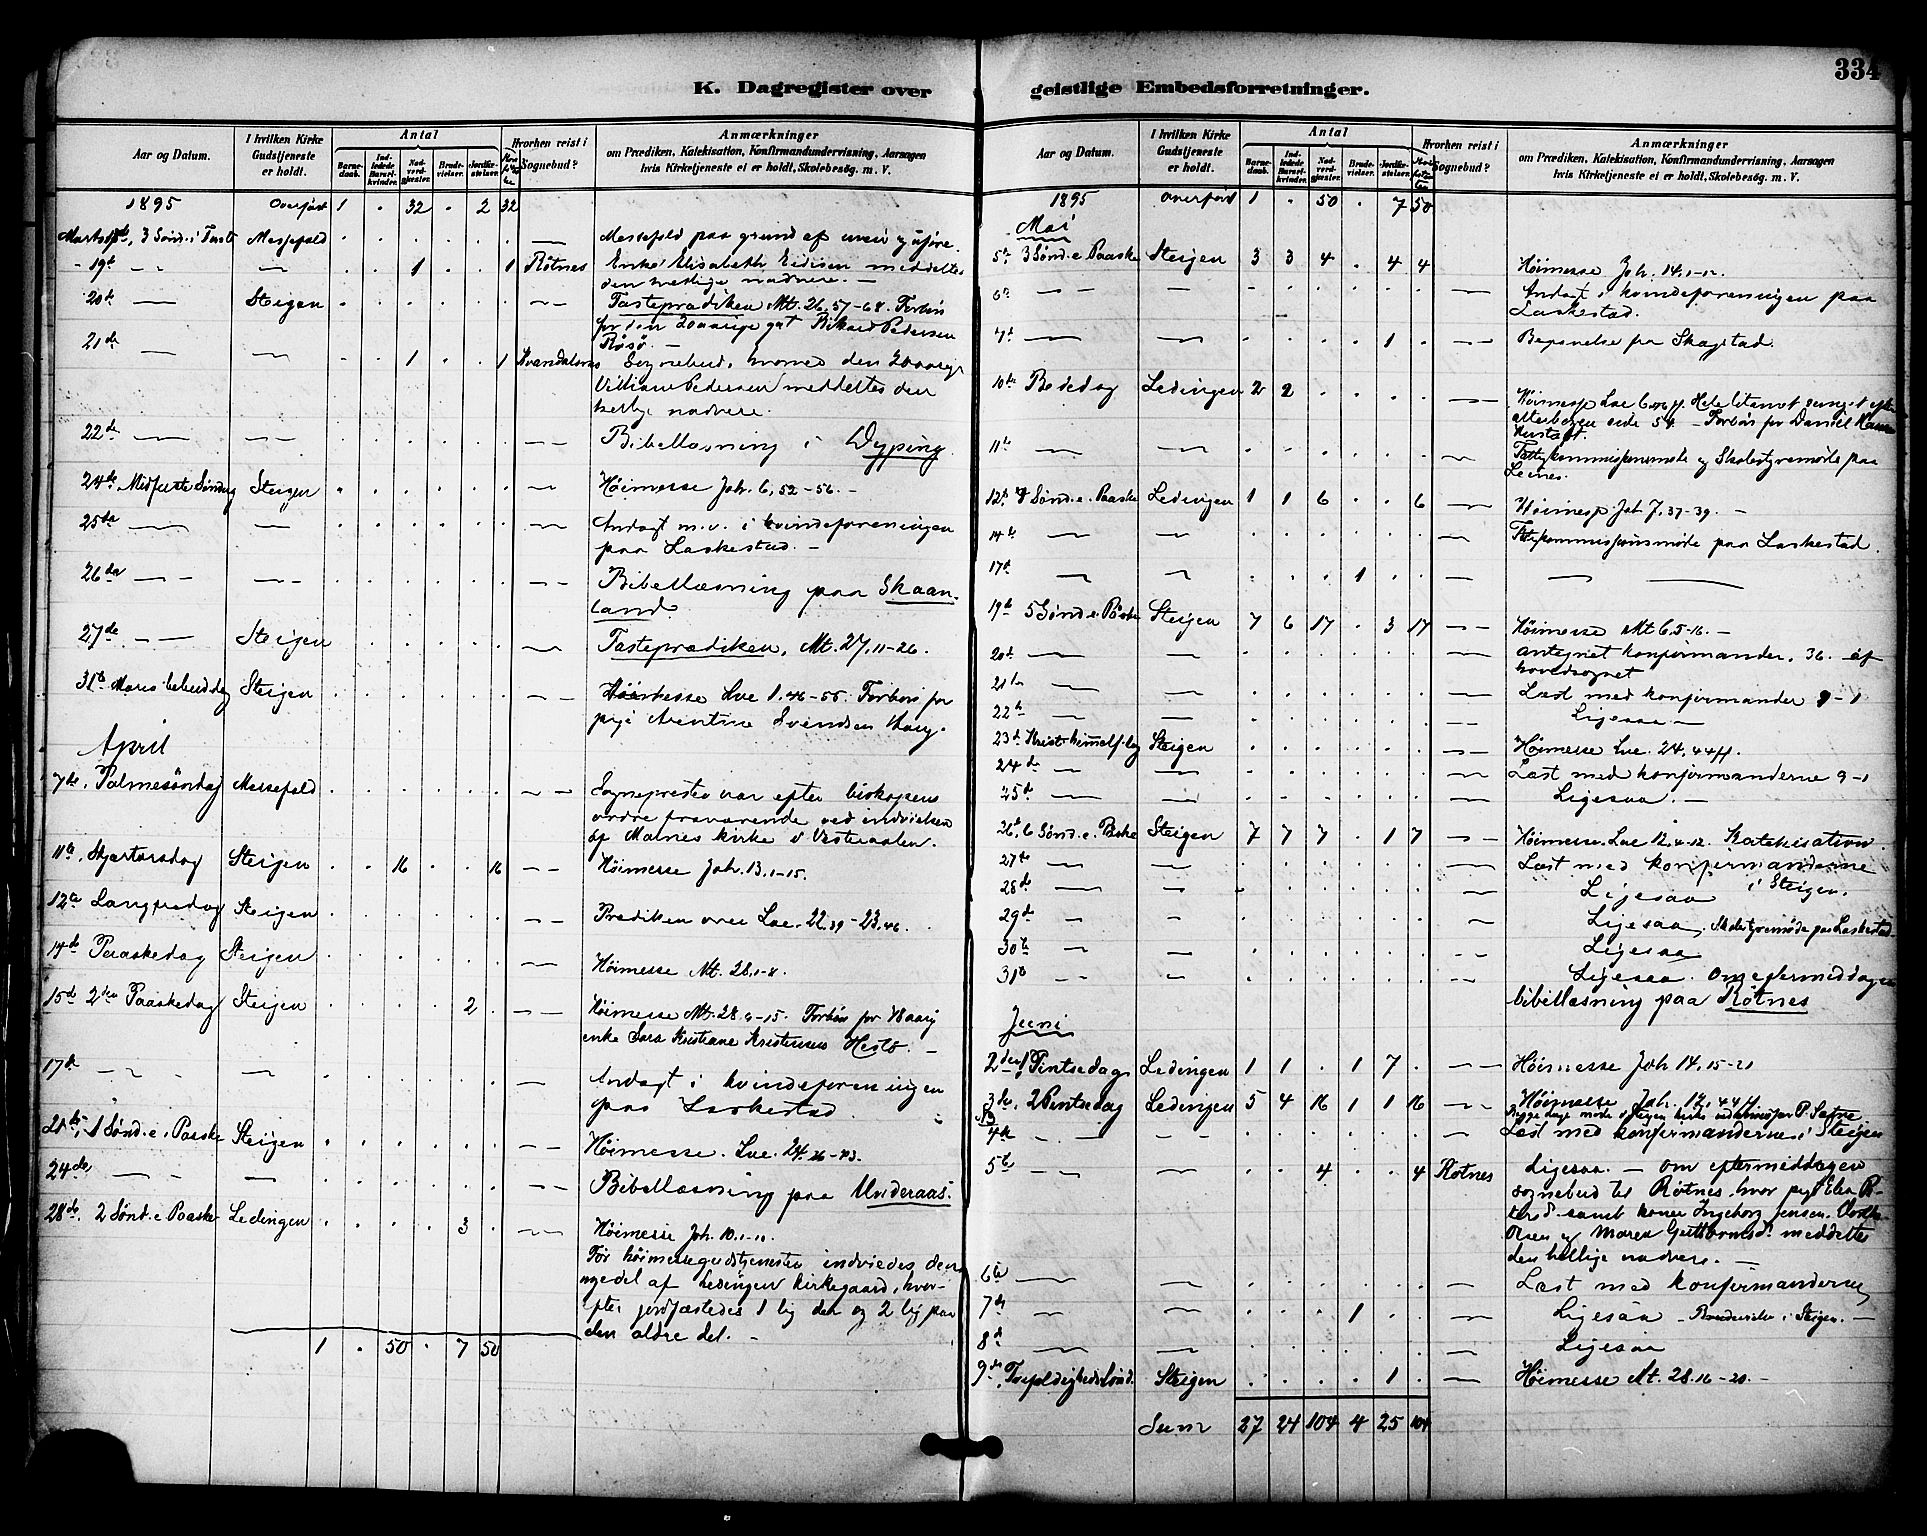 334
K. Dagregister over geistlige Embedsforretninger.
Aar og Datum.
I hvilken Kirke Gudstjeneste er holdt.
Antal
Barnedaab.
Indledede Barselkvinder.
Nadverdgjester.
Brudevielser.
Jordfæstelser.
Hvorhen reist i Sognebud?
Anmærkninger
om Prædiken, Katekisation, Konfirmandundervisning, Aarsagen
hvis Kirketjeneste ei er holdt, Skolebesøg. m. V.
1895 Overført 1 . 32 . 2 32
3 Sønd. i Faste Messefald . . . . . — Messefald paa grund af uveir og uføre.
19de — — . . 1 . . 1 Røtnes Enke Elisabeth meddeltes
den hellige nadvere. —
20de — Steigen . . . . . — Fasteprædiken Mt. 26, 57-68. Forbøn
for den 20aarige gut Rikard Pedersen
Røsø. —
21de — — . . 1 . . 1 Sognebud, hvorved den 20aarige
Pedersen meddeltes den
hellige nadvere.
22de — — . . . . . — Bibellæsning i Dyping.
24de Midfaste Søndag Steigen . . . . . — Høimesse Joh. 6, 52-56. —
25de — — . . . . . — Andagt m.v. i kvindeforeningen
paa Laskestad. —
26de — — . . . . . — Bibellæsning paa Skaan-
land.
27de — Steigen . . . . . — Fasteprædiken, Mt. 27, 11-26.
31te Marie bebud.dag Steigen . . . . . — Høimesse Luc 1. 46-55. Forbøn for
pige Arentine Svendsen
April
7de. Palmesøndag Messefald . . . . . — Sognepresten var efter biskopens
ordre fraværende ved indvielsen
af Malnes kirke i Vesteraalen.
11te. Skjærtorsdag Steigen . . 16 . . 16 — Høimesse Joh. 13, 1-15.
12te Langfredag Steigen . . . . . — Prædiken over Luc. 22, 39-23, 46.
14de Paaskedag Steigen . . . . . — Høimesse Mt. 28, 1-8.
15de 2den Paaskedag Steigen . . . . 2 . — Høimesse Mt. 28, 15. Forbøn for
enke Sara Kristiane Kristensen —
17de — — . . . . . — Andagt i kvindeforeningen
paa Laskestad
21de, 1 Sønd. e. Paaske Steigen . . . . . — Høimesse. Luc. 24, 36-43.
24de, — — . . . . . — Bibellæsning paa Underaas.
28de, 2 Sønd. e Paaske Ledingen . . . . 3 . — Høimesse Joh. 10, 1-11.
Før høimessegudstjenesten indviedes den
nye del af Ledingen kirkegaard, hvor-
efter jordfæstedes 1 lig der og 2 lig paa
den ældre del. —
1 . 50 . 7 50
Aar og Datum.
I hvilken Kirke Gudstjeneste er holdt.
Antal
Barnedaab.
Indledede Barselkvinder.
Nadverdgjester.
Brudevielser.
Jordfæstelser.
Hvorhen reist i Sognebud?
Anmærkninger
om Prædiken, Katekisation, Konfirmandundervisning, Aarsagen
hvis Kirketjeneste ei er holdt, Skolebesøg. m. V.
1895 Overført 1 . 50 . 7 50
Mai
5te 3 Sønd. e. Paaske Steigen 3 3 4 . 4 4 Høimesse Joh. 14, 1-12.
6te — — . . . . . — Andagt i kvindeforeningen paa
Laskestad.
7de — — . . . . 1 . — Begravelse fra Skagstad.
10de Bededag Ledingen 2 2 . . . — Høimesse Luc 6, 46 ff. Hele litaniet sunget efter
alterbogen side 54. — Forbøn for Daniel
11te — — . . . . . — Fattigkommissionsmøde og Skolestyremøde paa
Leines.
12te 4 Sønd. e. Paaske Ledingen 1 1 6 . . 6 — Høimesse Joh 7, 37-39. —
14de — — — Fattigkommissionsmøde paa Laskestad.
17de — — . . . 1 . . — — —
19de 5 Sønd. e. Paaske Steigen 7 6 17 . 3 17 — Høimesse Mt 6, 5-16. —
20de — — . . . . . — antegnet konfirmander. 36. af
hovedsognet
21de — — . . . . . — Læst med konfirmander 9-1
22de — — . . . . . — Ligesaa —
23de Krist. himmelf.dag Steigen . . . . . — Høimesse Luc. 24, 44 ff.
24de — — . . . . . — Læst med konfirmanderne 9-1
25de — — . . . . . — Ligesaa. —
26de, 6 Sønd. e. Paaske Steigen 7 7 7 . 1 7 — Høimesse. Luc 12, 4-12. Katekisation.
27de — — . . . . . — Læst med konfirmanderne
i Steigen.
28de — — . . . . . — Ligesaa
29de — — . . . . . — Ligesaa. Skolestyremøde paa Laskestad.
30te — — . . . . . — Ligesaa
31te — — . . . . . — Ligesaa. Om eftermiddagen
bibellæsning paa Røtnes
Juni
2den, 1 Pintsedag Ledingen 1 1 . 1 7 . — Høimesse Joh 14, 15-21
3die, 2 Pintsedag Ledingen 5 4 16 1 1 16 — Høimesse Joh. 12, 44 ff.
Begge dage møde i Steigen kirke ved
4de — — . . . . . — Læst med konfirmanderne i Steigen
5te — — . . 4 . . 4 Røtnes Ligesaa. — Om eftermiddagen
sognebud til Røtnes, hvor pige
samt koner Ingeborg Jensen,
Olsen og Maren Guttormsd. meddeltes
den hellige nadvere. —
6te — — . . . . . — Læst med konfirmanderne
7de — — . . . 1 . . — Ligesaa — Brudevielse i Steigen. —
8de — — — Ligesaa
9de, Trefoldigheds Sønd. Steigen . . . . 1 . — Høimesse Mt. 28, 16-20. —
Sum 27 24 104 4 25 104